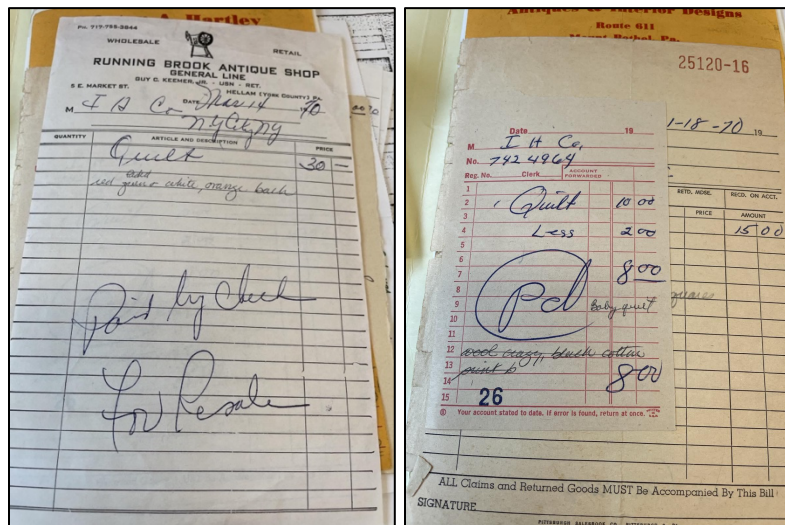 A. Hartley
Ph. 717-755-3844
WHOLESALE RETAIL
RUNNING BROOK ANTIQUE SHOP
GENERAL LINE
GUY C. KEEMER, JR. - USN - RET.
5 E. MARKET ST. HELLAM (YORK COUNTY) PA.
M I A Co DATE Mar 14 1970
N Y City, NY
QUANTITY ARTICLE AND DESCRIPTION PRICE
Quilt 30 —
red green & white, orange back
Paid by Check
For Resale
Antiques & Interior Designs
Route 611
Mount Bethel, Pa.
25120-16
1-18-70 19
RETD. MDSE. RECD. ON ACCT.
PRICE AMOUNT
15 00
Date 19
M I H Co,
No. 742 4964
Reg. No. Clerk ACCOUNT FORWARDED
1
2 Quilt 10 00
3
4 Less 2 00
5
6
7 8 00
8 Pd
9 Baby quilt
10
11
12 wool crazy, black cotton
13 print b
14 8 00
15 26
Your account stated to date. If error is found, return at once.
ALL Claims and Returned Goods MUST Be Accompanied By This Bill
SIGNATURE
PITTSBURGH SALESBOOK CO.